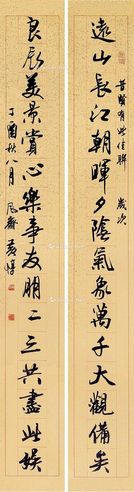 遠山長江朝暉夕陰氣象萬千大觀備矣
昔賢有此佳聯 歲次
良辰美景賞心樂事友朋二三共盡此娛
丁酉秋八月